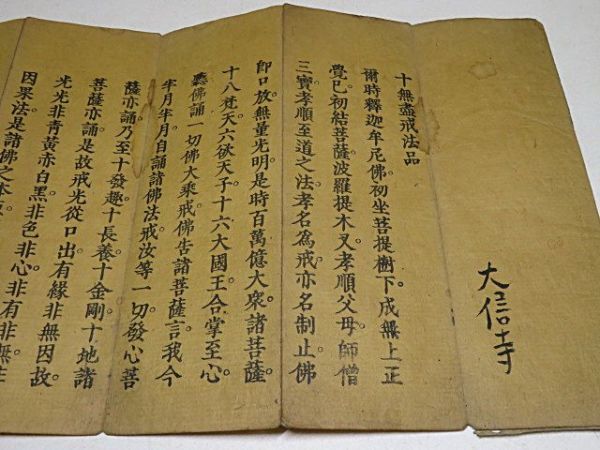 大信寺
十無盡戒法品
爾時釋迦牟尼佛。初坐菩提樹下。成無上正
覺已。初結菩薩波羅提木叉。孝順父母師僧
三寶。孝順至道之法。孝名為戒。亦名制止。佛
即口放無量光明。是時百萬億大衆。諸菩薩。
十八梵天。六欲天子。十六大國王。合掌至心。
聽佛誦一切佛大乘戒。佛告諸菩薩言。我今
半月半月。自誦諸佛法戒。汝等一切發心菩
薩亦誦。乃至十發趣。十長養。十金剛。十地。諸
菩薩亦誦。是故戒光從口出。有緣非無因。故
光光非青黃赤白黑。非色。非心。非有。非無。非
因果法。是諸佛之本